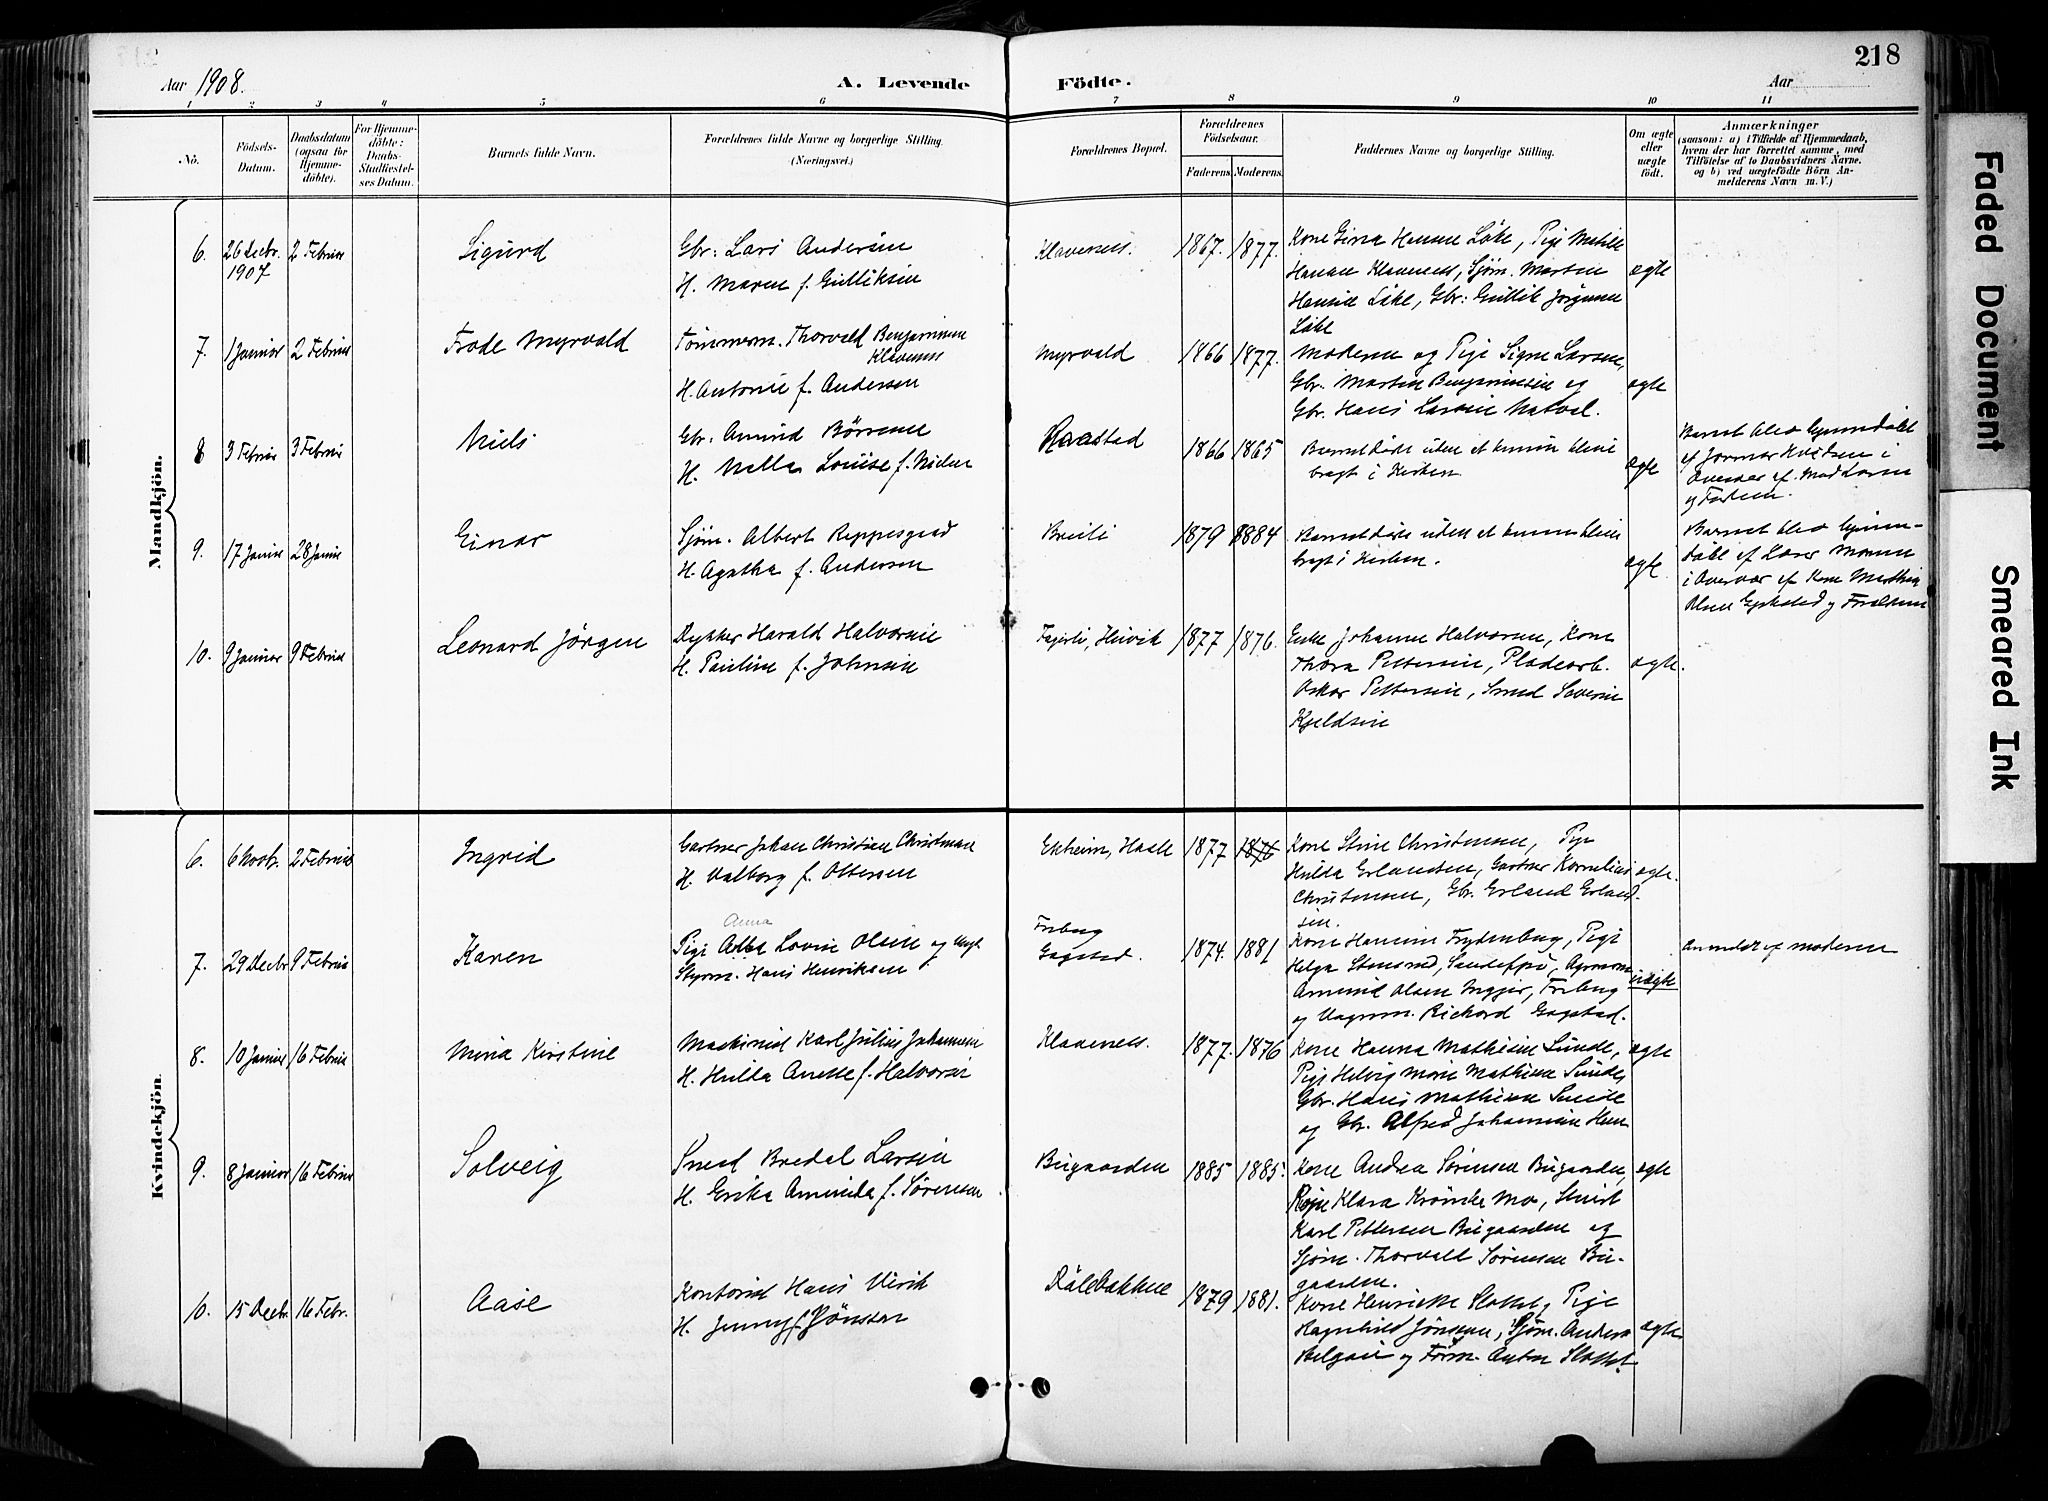 218
Aar 1908.
A. Levende Födte.
Aar
1 2 3 4 5 6 7 8 9 10 11
No.
Födsels-Datum.
Daabsdatum (ogsaa for Hjemmedöbte).
For Hjemmedöbte: Daabs-Stadfæstelses Datum.
Barnets fulde Navn.
Forældrenes fulde Navne og borgerlige Stilling.
(Næringsvei.)
Forældrenes Bopæl.
Forældrenes Födselsaar.
Faderens Moderens.
Faddernes Navne og borgerlige Stilling.
Om ægte eller uægte födt.
Anmærkninger
(saasom: a) i Tilfælde af Hjemmedaab,
hvem der har forrettet samme, med
Tilföielse af to Daabsvidners Navne.
og b) ved uægtefödte Börn An-
melderens Navn m.V.)
Mandkjön.
6. 26 Decbr. 1907 2 Februar Sigurd
Gbr: Lars Andersen
H. Maren f. Gulliksen
Klavenes. 1867. 1877.
Kone Gina Hansen Løke, Pige Mathilde
Hansen Klaveness, Sjøm. Morten
Hansen Løke, Gbr: Gullik Jørgensen
Løke
ægte
7. 1 Januar 2 Februar Frode Myrvold
Tømmerm. Thorvald Benjaminsen
Klavenes
H. Antonie f. Andersen
Myrvold 1866 1877.
Moderen og Pige Signe Larsen,
Gbr. Martin Benjaminsen og
Gbr. Hans Larsen Natval.
ægte
8 3 Februar 3 Februar Niels
Gbr: Amund Börresen
H. Nella Louise f. Nielsen
Raastad 1866 1865
Barnet døde uden at kunne blive
bragt i Kirken
ægte
Barnet blev hjemmedøbt
af Jormor Knudsen i
Overvær af
og Faderen.
9. 17 Januar 28 Januar Einar
Sjøm. Albert Reppesgaard
H. Agathe f. Andersen
Breili 1879 1884
Barnet døde uden at kunne blive
bragt i Kirken.
ægte
Barnet blev hjemme-
døbt af Lærer Momme
i Overvær af Kone Mathea
Olsen Gjekstad og Forældrene
10. 9 Januar 9 Februar Leonard Jörgen
Dykker Harald Halvorsen
H. Pauline f. Johnsen
Fagerli, Huvik 1877 1876.
Enke Johanne Halvorsen, Kone
Thora Pettersen, Pladearb.
Oskar Pettersen, Smed Severin
Kjeldsen
ægte.
Kvindekjön.
6. 6 Novb. 2 Februar Ingrid
Gartner Johan Christian Christensen
H. Valborg f. Ottersen
Ekheim, Hasle 1877 1876
Kone Stine Christensen, Pige
Hilda Erlandsen, Gartner Kornelius
Christensen, Gbr. Erland Erland-
sen.
ægte.
7. 29 Decbr 9 Februar Karen
Anna
Pige Alba Lovise Olsen og Ungk.
Styrm. Hans Henriksen
Friberg
Gogstad. 1874. 1881
Kone Hansine Frydenberg, Pige
Helga Stensrud, Sandefjord, Agronom
Amund Olsen Unjer, Friberg
og Vognm. Richard Gogstad.
uægte
Anmeldt af Moderen
8. 10 Januar 16 Februar Mina Kirstine
Maskinist Karl Julius Johansen
H. Hilda Anette f. Halvorsen
Klavenes. 1877. 1876
Kone Hanna Mathisen Sunde,
Pige Helvig Marie Mathisen Sunde,
Gbr. Hans Mathisen Sunde
og Gbr. Alfred Johannesen Hem
ægte
9. 8 Januar 16 Februar Solveig
Smed Bredal Larsen
H. Erika Amunda f. Sørensen.
Bugaarden 1885 1885.
Kone Andrea Sørensen Bugaarden,
Pige Klara Krönike Mo, Smed
Karl Pettersen Bugaarden og
Sjøm. Thorvald Sørensen Bu-
gaarden.
ægte
10. 15 Decbr. 16 Febr. Aase
Kontorist Hans Ulrik
H. Jenny f. Jönsson
Dølebakken 1879 1881.
Kone Henriette Slottet, Pige
Ragnhild Jönsson, Sjøm. Anders
Belgau og Form. Anton Slottet
ægte
Faded Document
Smeared Ink